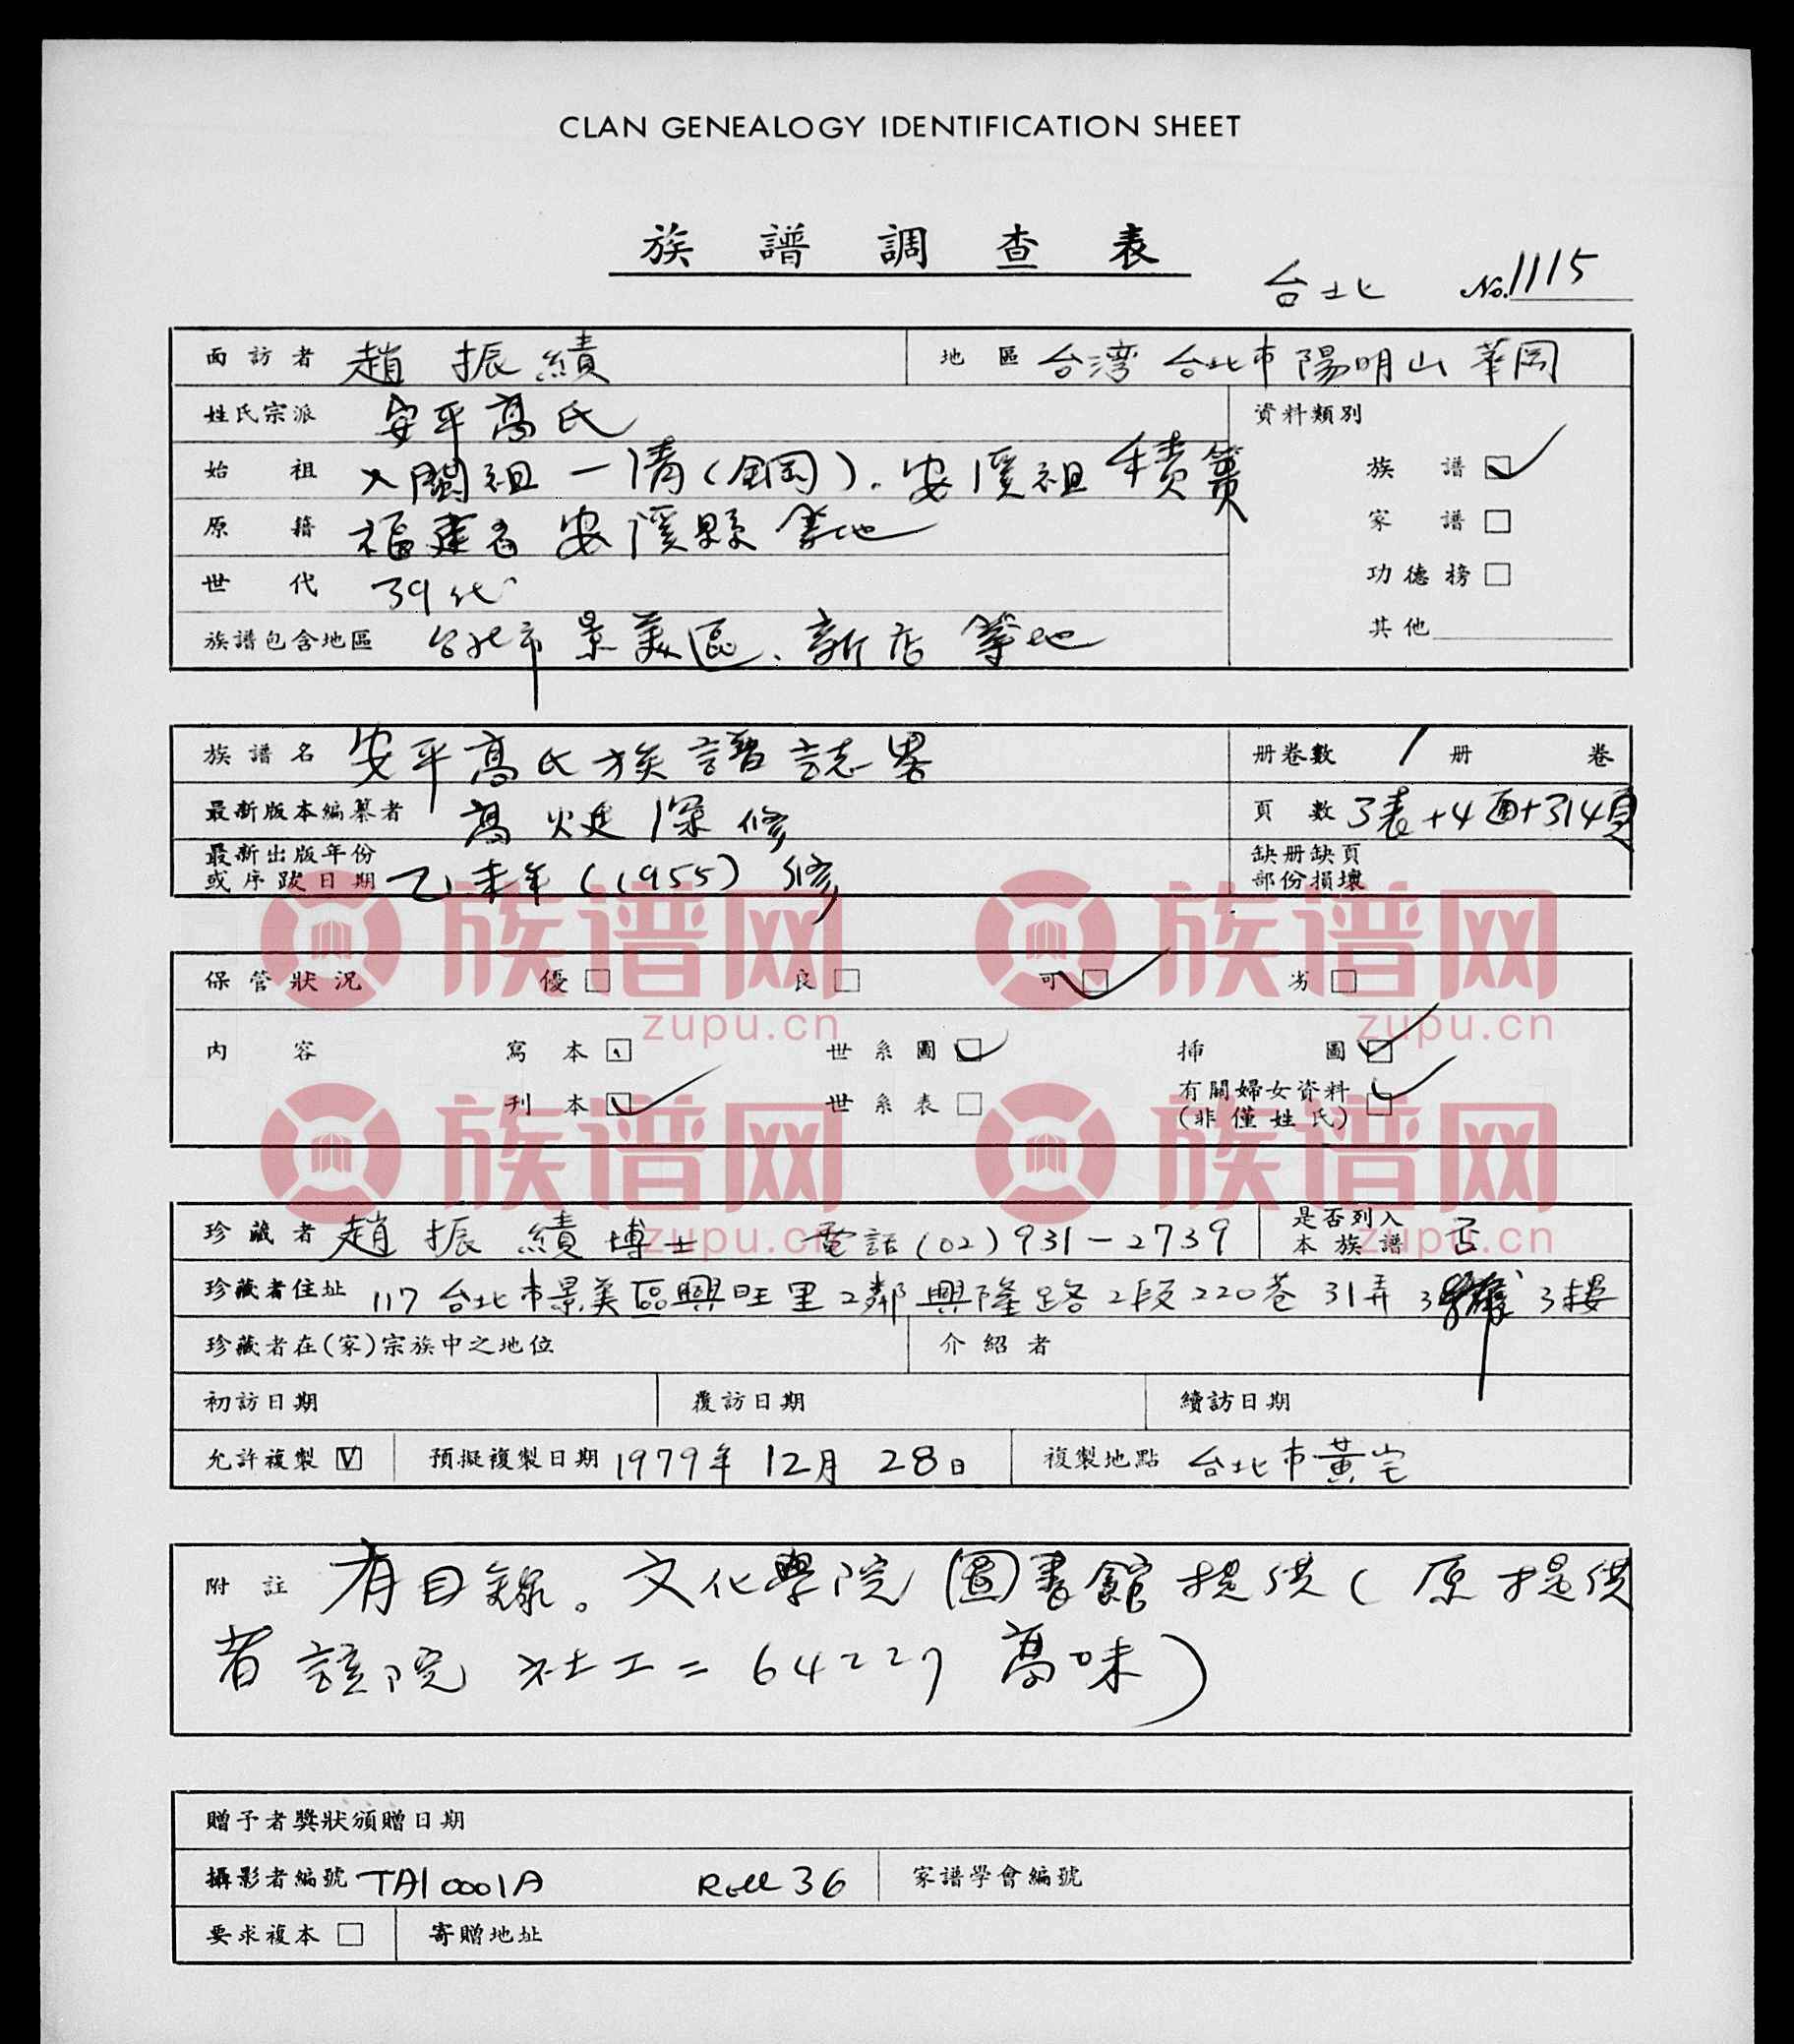 CLAN GENEALOGY IDENTIFICATION SHEET
族譜調查表
台北 No. 1115
面訪者 趙振績 地區 台湾台北市陽明山華岡
姓氏宗派 安平高氏 資料類別
始祖 入閩祖一清(鋼).安溪祖積簣 族譜 ☑
原籍 福建省安溪縣等地 家譜 □
世代 39代 功德榜 □
族譜包含地區 台北市景美區、新店等地 其他
族譜名 安平高氏族譜誌畧 册卷數 1 册 卷
最新版本編纂者 高火廷深修 頁數 3表+4面+314頁
最新出版年份或序跋日期 乙未年(1955)修 缺册缺頁部份損壞
保管狀況 優 □ 良 □ 可 ☑ 劣 □
內容 寫本 □ 世系圖 ☑ 挿圖 ☑
刊本 ☑ 世系表 □ 有關婦女資料(非僅姓氏) ☑
珍藏者 趙振績博士 電話(02)931-2739 是否列入本族譜 否
珍藏者住址 117台北市景美區興旺里2鄰興隆路2段220巷31弄3號3樓
珍藏者在(家)宗族中之地位 介紹者
初訪日期 覆訪日期 續訪日期
允許複製 ☑ 預擬複製日期 1979年12月28日 複製地點 台北市黃宅
附註 有目錄。文化學院圖書館提供(原提供
者該院社工二 64227 高味)
贈予者獎狀頒贈日期
攝影者編號 TAI0001A Roll 36 家譜學會編號
要求複本 □ 寄贈地址
族谱网 族谱网
zupu.cn zupu.cn
族谱网 族谱网
zupu.cn zupu.cn